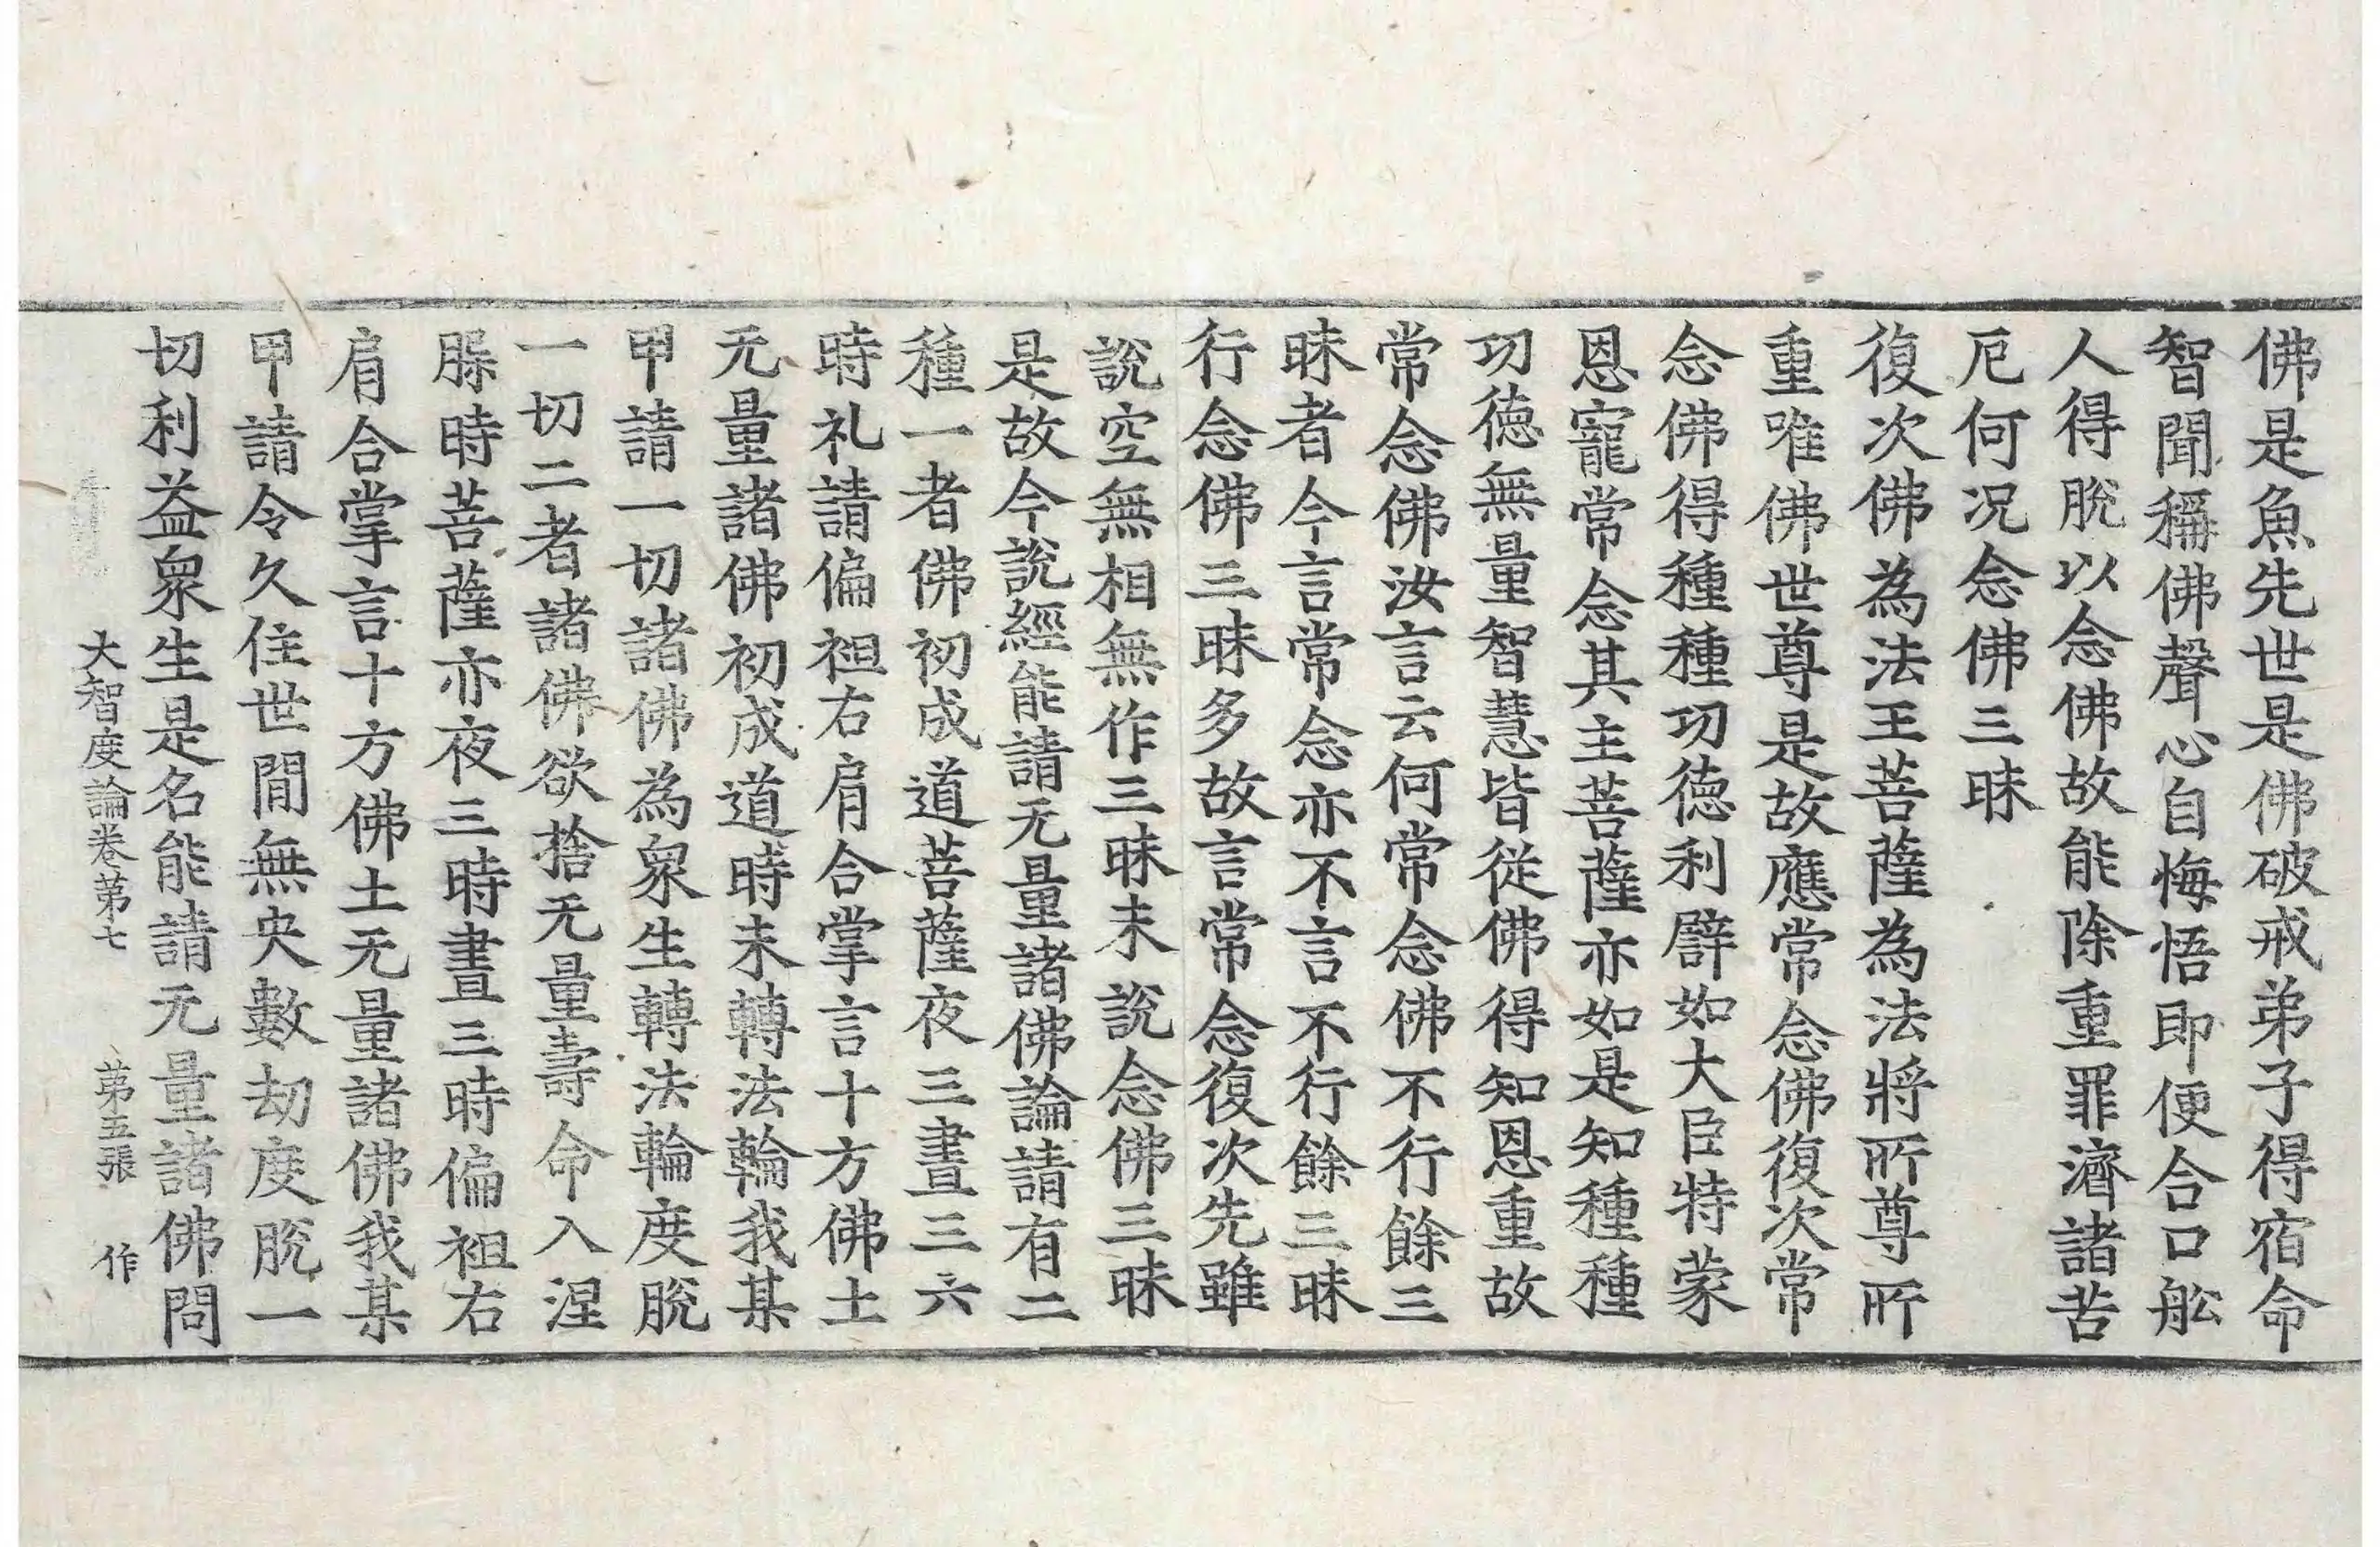 佛是魚先世是佛破戒弟子得宿命
智聞稱佛聲心自悔悟即便合口舩
人得脫以念佛故能除重罪濟諸苦
厄何况念佛三昧
復次佛為法王菩薩為法將所尊所
重唯佛世尊是故應常念佛復次常
念佛得種種功德利譬如大臣特蒙
恩寵常念其主菩薩亦如是知種種
功徳無量智慧皆從佛得知恩重故
常念佛汝言云何常念佛不行餘三
昧者今言常念亦不言不行餘三昧
行念佛三昧多故言常念復次先雖
說空無相無作三昧未說念佛三昧
是故今說經能請无量諸佛論請有二
種一者佛初成道菩薩夜三晝三六
時礼請偏袒右肩合掌言十方佛土
无量諸佛初成道時未轉法輪我某
甲請一切諸佛為衆生轉法輪度脫
一切二者諸佛欲捨无量壽命入涅
槃時菩薩亦夜三時晝三時偏袒右
肩合掌言十方佛土无量諸佛我某
甲請令久住世間無央數劫度脫一
切利益衆生是名能請无量諸佛問
大智度論卷苐七 苐五張 作